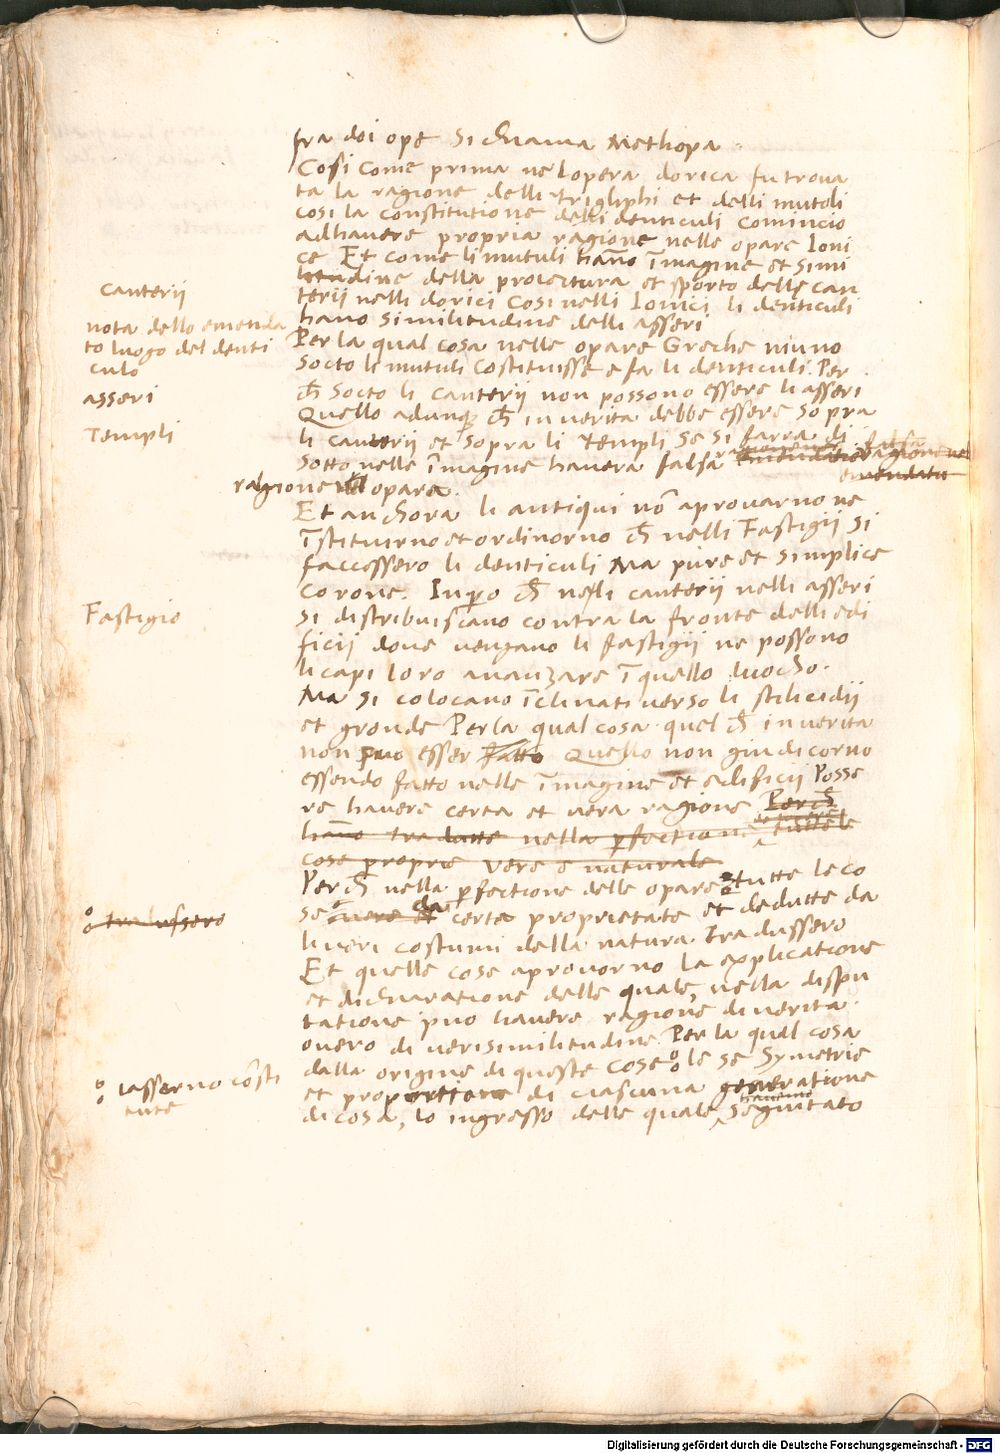 fra doi ope si chiama Methopa
Cosi come prima nel opera dorica fu trova
ta la ragione delli trigliphi et delli mutoli
cosi la constitutione delli denticuli comincio
adhavere propria ragione nelle opare Ioni
ce Et come li mutuli hāno īmagine et simi
litudine della proiectura et sporto delle can
canterii
terii nelli dorici Cosi nelli Ionici li denticuli
nota dello emenda
hano similitudine delli asseri
to luogo del denti
Per la qual cosa nelle opare Greche niuno
culo
socto li mutuli costituisse e fa li denticuli. Per
asseri
ch̄ socto li canterii non possono essere li asseri
Quello adunq; ch̄ in verita debbe essere sopra
Templi
li canterii et sopra li templi se si farra di
sotto nelle īmagine havera falsa
ragione opare.
Et anchora li antiqui nō aprovarno ne
īstituirno et ordinorno ch̄ nelli Fastigii si
facessero li denticuli Ma pure et simplice
corone. Inpero ch̄ nelli canterii nelli asseri
Fastigio
si distribuiscano contra la fronte delli edi
ficii dove vengano li fastigii ne possono
li capi loro avanzare ī quello luocho.
Ma si colocano īclinati verso li stilicidii
et gronde Per la qual cosa quel ch̄ in verita
non puo esser fatto Quello non giudicorno
essendo fatto nelle īmagine et edificii Posse
re havere certa et vera ragione Perch̄
hāno tradutte nella perfectione tutte le
cose proprie vere e naturale
Perch̄ nella perfectione delle opare tutte le co
se da certa proprietate et dedutte da
tradussero
li veri costumi della natura. tradussero
Et quelle cose aprovorno la explicatione
et dichiaratione delle quale, nella dispu
tatione puo havere ragione di verita
overo di verisimilitudine. Per la qual cosa
dalla origine di queste cose le se Symetrie
lasserno cōsti
tute
et proportione di ciascuna generatione
di cosa, lo ingresso delle quale havemo seguitato
Digitalisierung gefördert durch die Deutsche Forschungsgemeinschaft - DFG